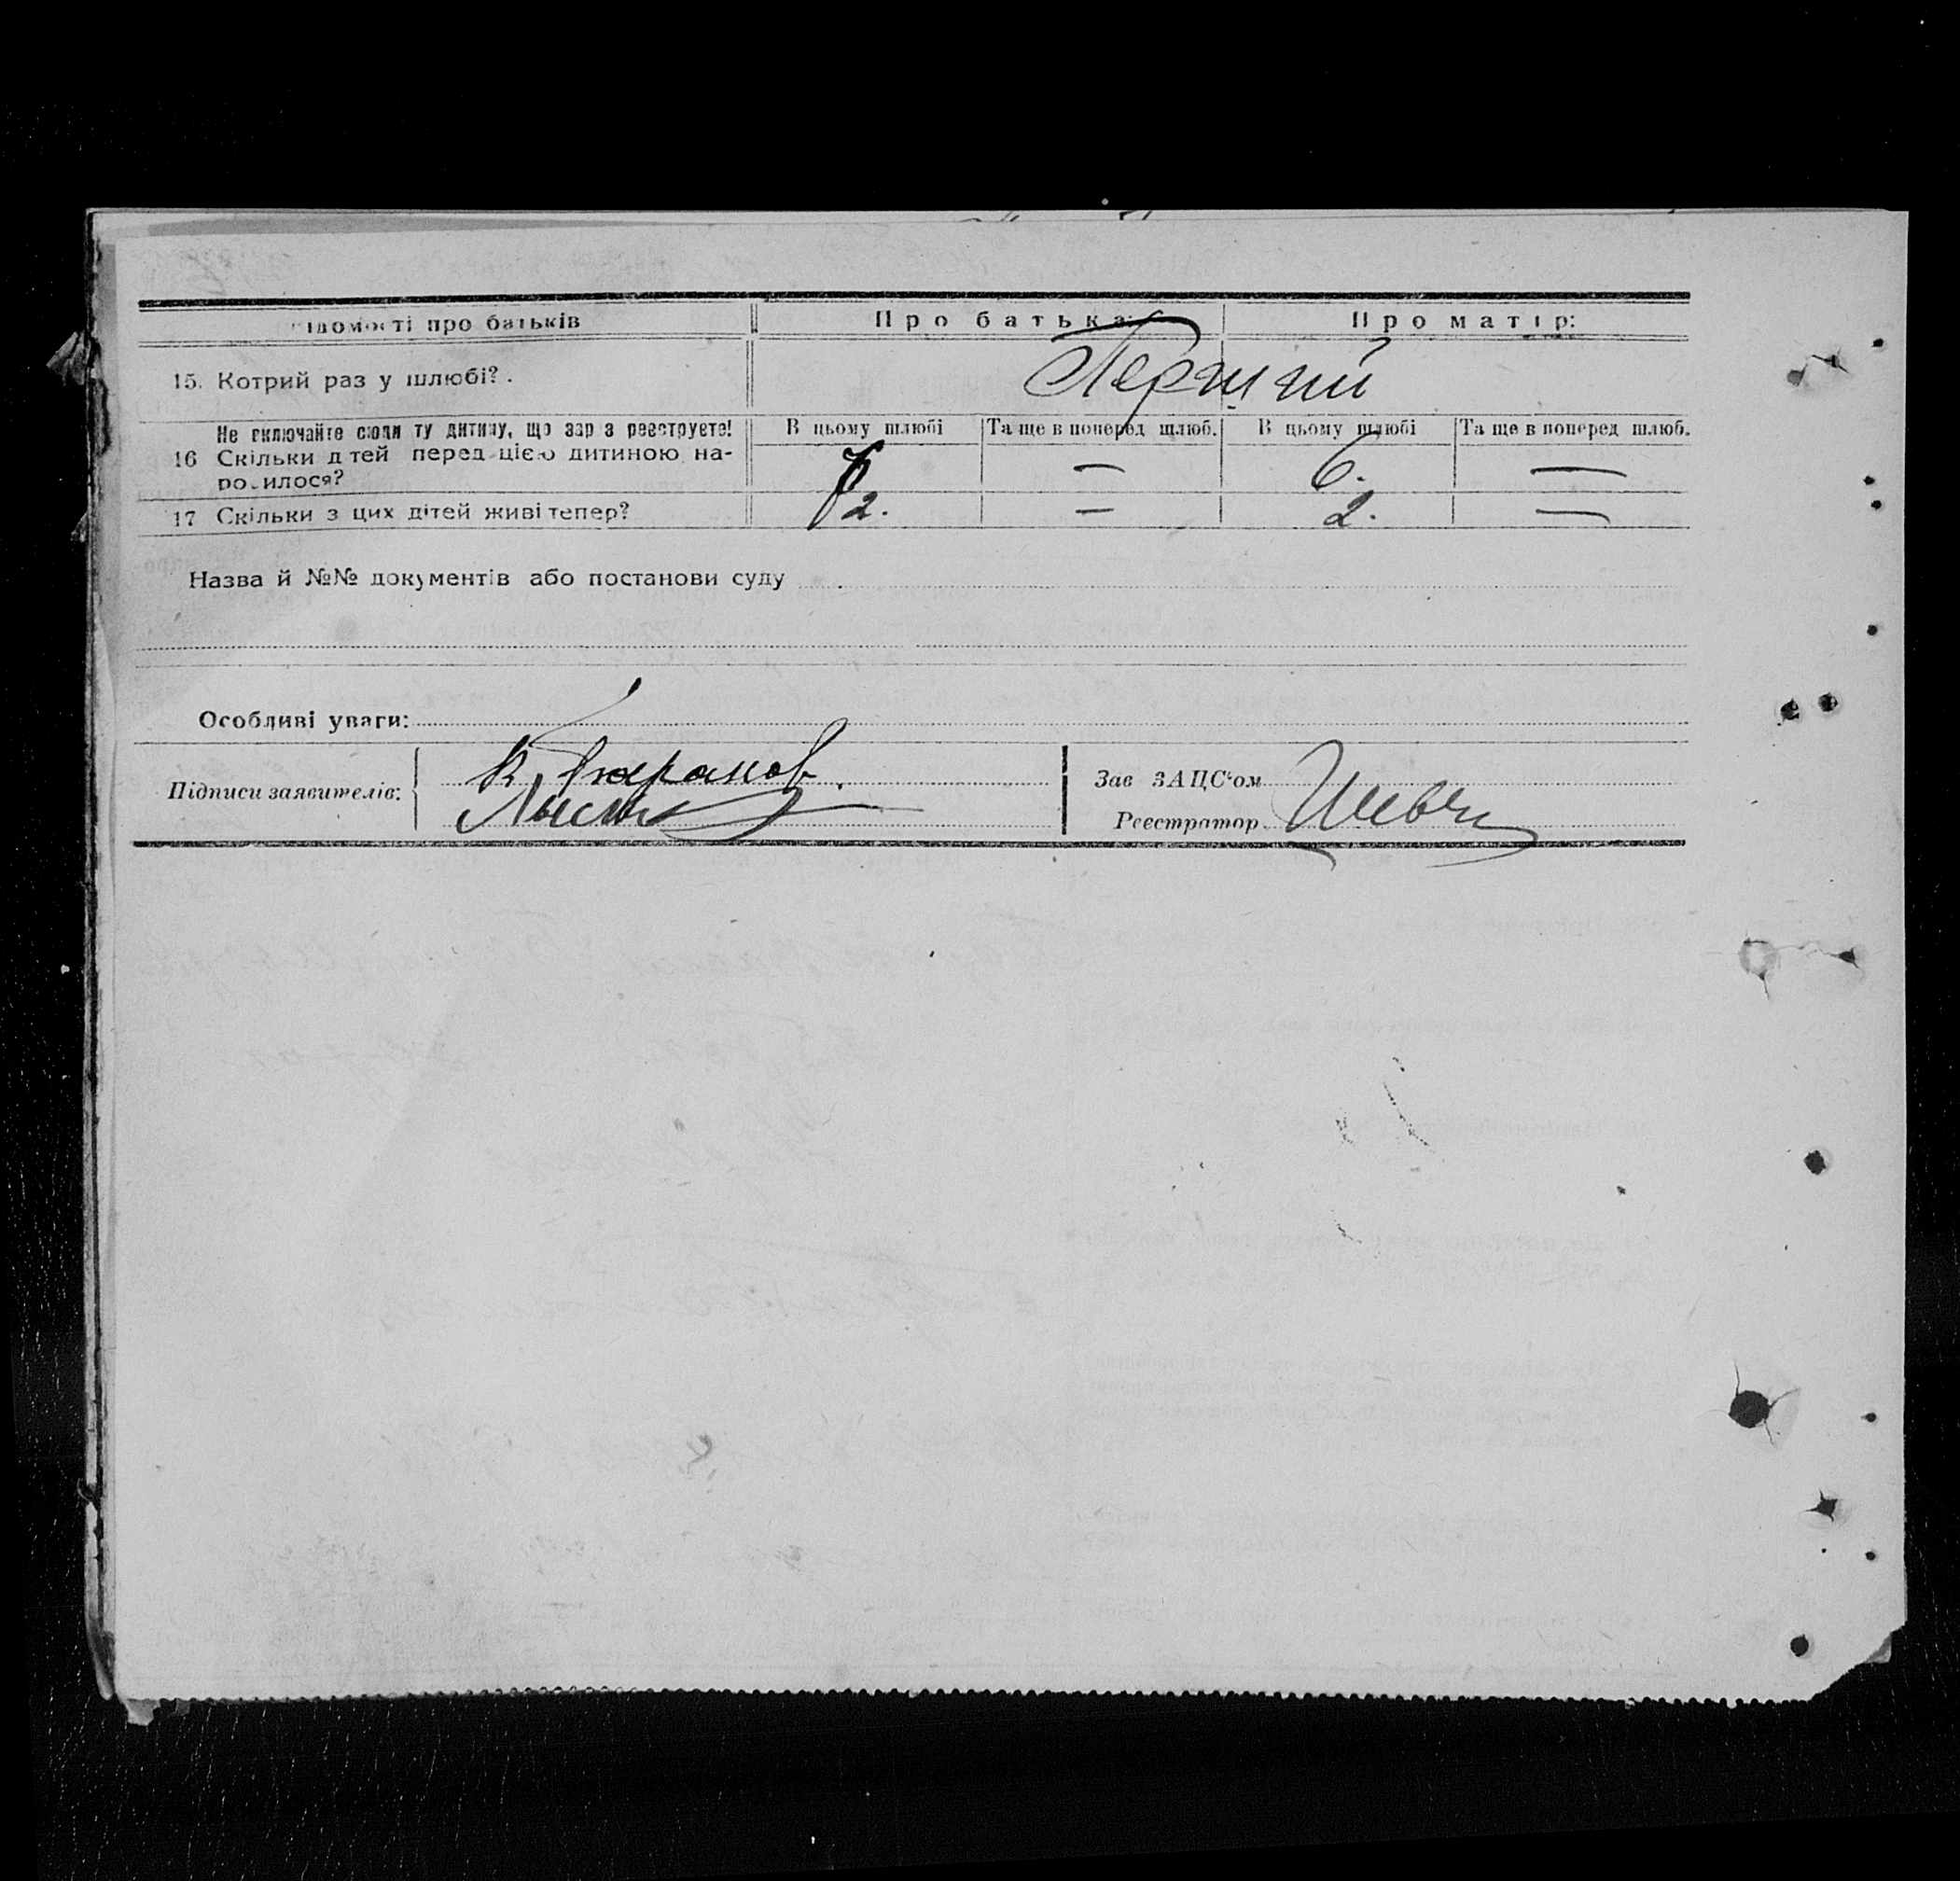 ідомості про батьків Про батька: Про матір:
15. Котрий раз у шлюбі?. Перший
Не включайте сюди ту дитину, що зар з реєструєте! В цьому шлюбі Та ще в поперед шлюб. В цьому шлюбі Та ще в поперед шлюб.
16 Скільки д тей перед цією дитиною на- — 6. —
ро.илося?
17 Скільки з цих дітей живі тепер? 2. — 2. —
Назва й №№ документів або постанови суду
Особливі уваги:
Підписи заявителів:
Зав ЗАЦС‘ом
Реєстратор